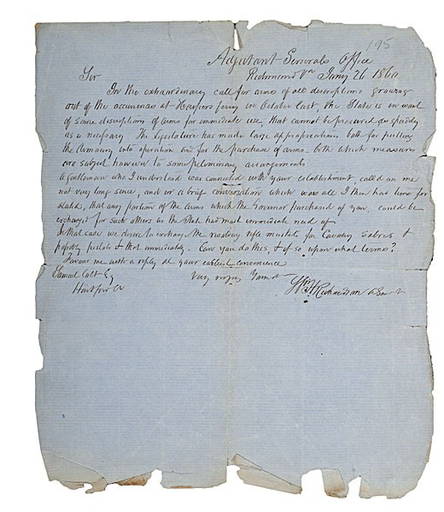 195
Adjutant Generals Office
Richmond Va Jany 26 1860
Sir
In the extraordinary call for arms of all descriptions growing
out of the occurrences at Harpers ferry in October last, the State is in want
of some descriptions of arms for immediate use, that cannot be procured as
as necessary The Legislature has made large appropriations both for putting
the Armory into operation and for the purchase of arms. both which measures
are subject however to some preliminary arrangements
A gentleman who I understood was connected with your establishment, called on me
not very long since, and in a brief conversation which was all I then had time for
stated, that any portion of the arms which the Governor purchased of you could be
exchanged for such others as the State had most immediate need of
In that case we desire to exchange the rifle muskets for Cavalry Sabres &
pistols & that immediately. Can you do this & if so upon what terms?
favour me with a reply at your earliest convenience
Very
Samuel Colt Esq
Hartford Ct
Wm H Richardson